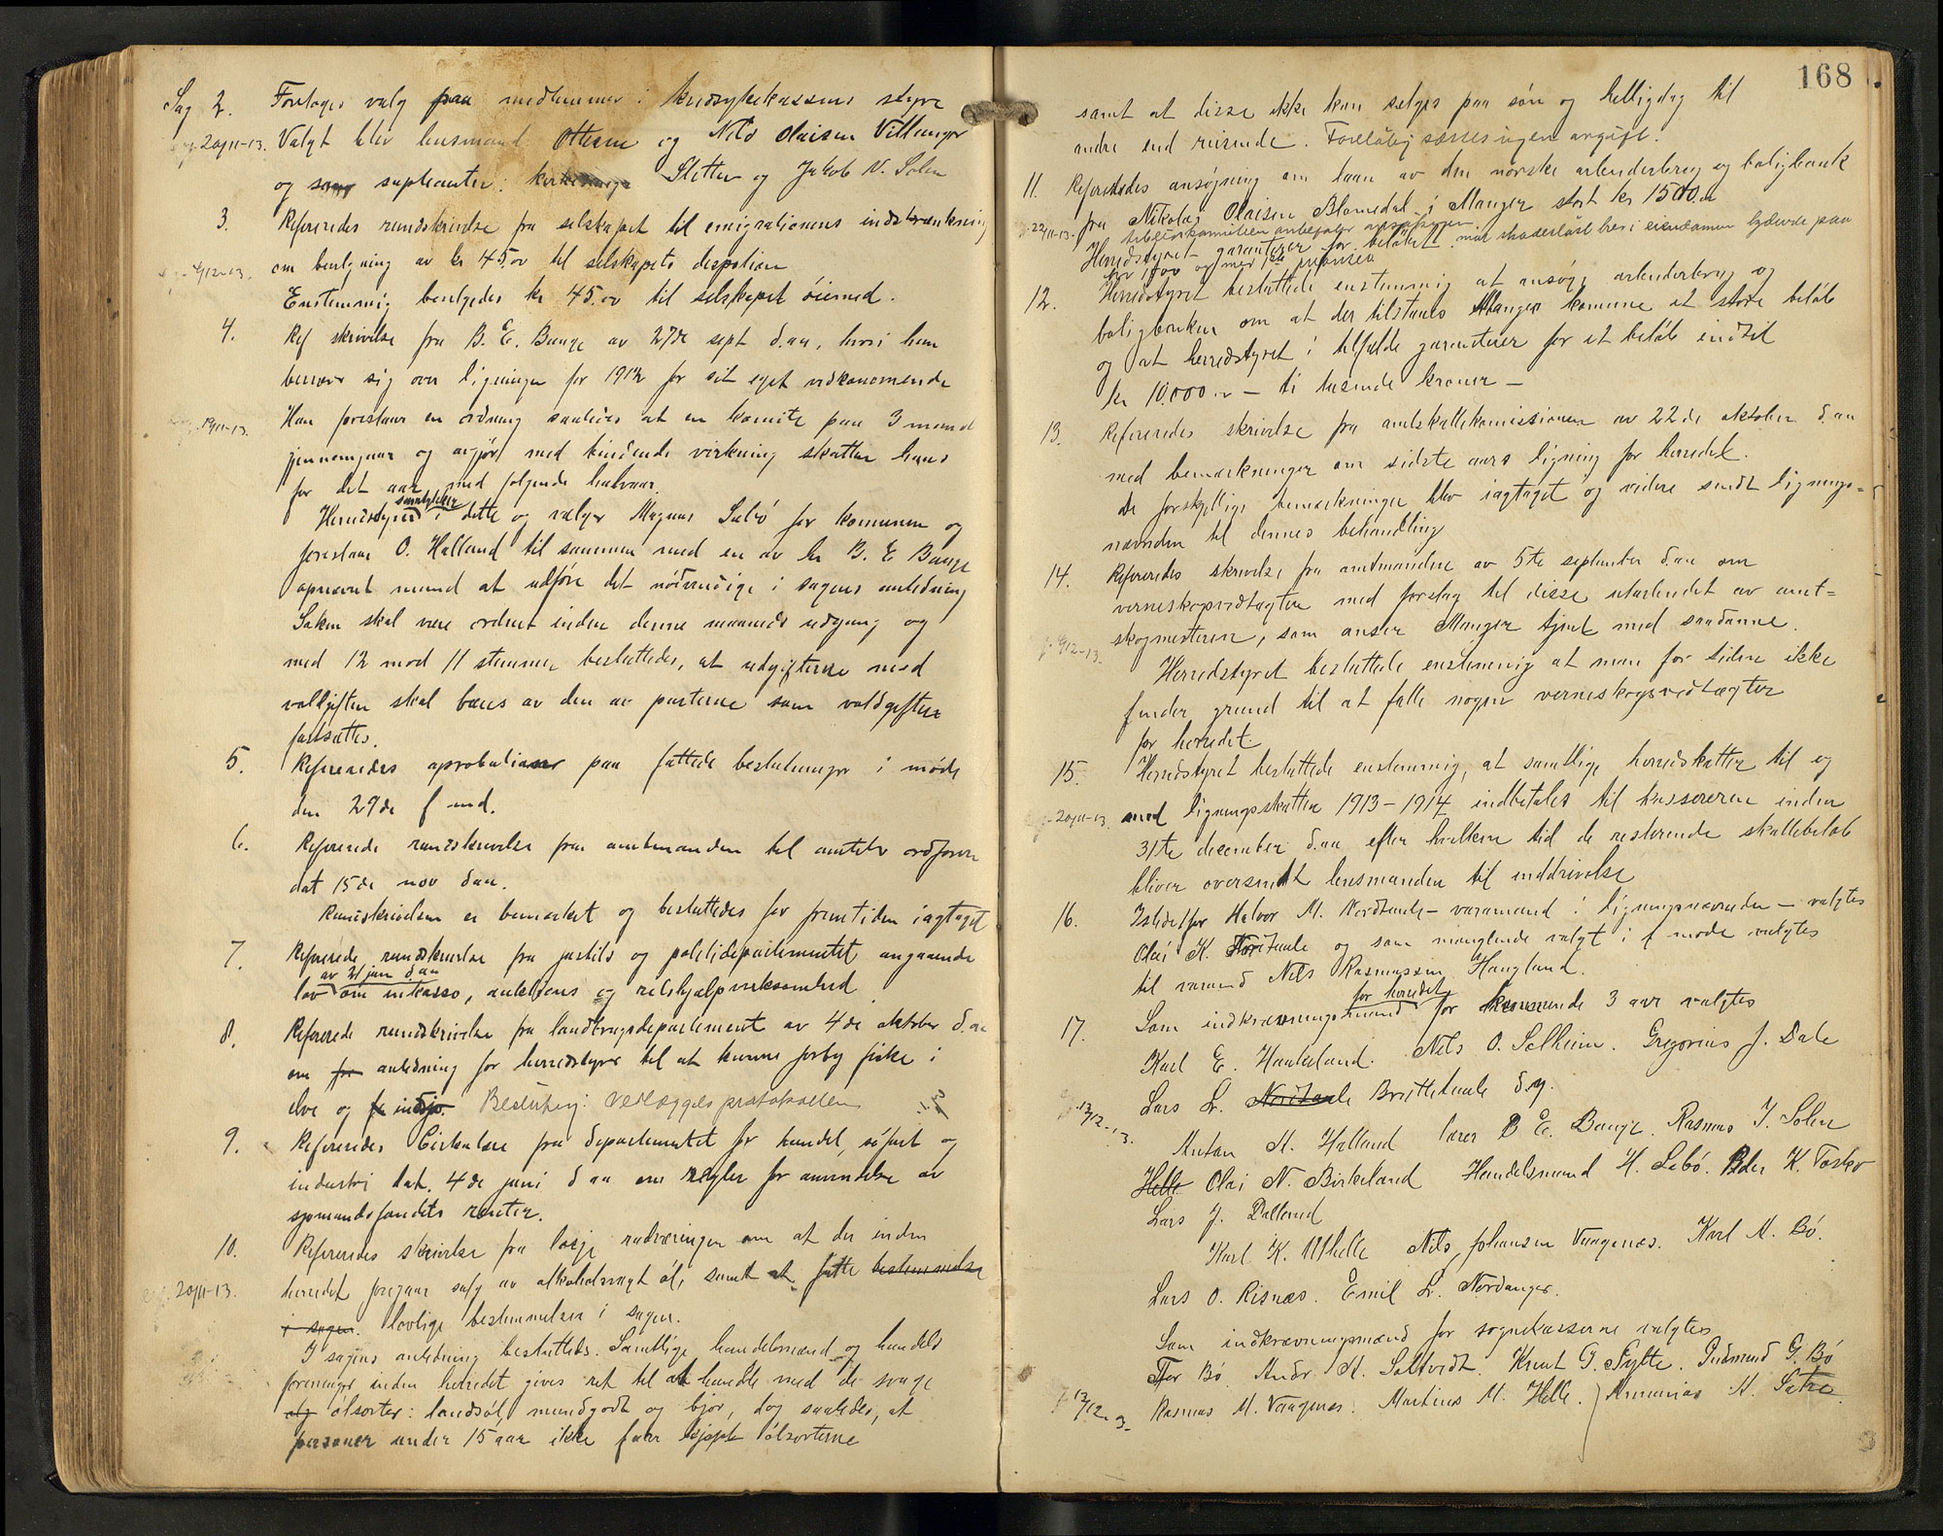 Sag 2. Foretages valg paa medlemmer i kredsykekassens styre
20/11-13. Valgt blev lensmand Ottesen og Nils Olaisen Villanger
og som supleanter: Sletten og Jakob N. Solem
3. Refereredes rundskrivelse fra selskapet til emigrationens indskrænkning
4/12-13. om bevilgning av kr 45,00 til selskapets disposition
Enstemmig bevilgedes kr 45.00 til selskapet öiemed.
4. Ref skrivelse fra B. E. Bauge av 27de sept d.aa, hvori han
besvær sig over ligningen for 1912 for sit eget vedkommende
19/11-13. Han foreslaar en ordning saaledes at en komite paa 3 mand
gjennemgaar og avgjør med bindende virkning skatten hans
for det aar med følgende halvaar.
samtykker
Herredstyret i dette og vælger Magnus Sæbö for komunen og
foreslaar O. Halland til sammen med en av hr B. E. Bauge
opnævnt mand at udföre det nödvendige i sagens anledning
Saken skal være ordnet inden denne maaneds udgang og
med 12 mod 11 stemmer besluttedes, at udgifterne med
voldgiften skal bæres av den av parterne som voldgiften
fastsættes.
5. Refereredes aprobationer paa fattede beslutninger i møde
den 29de f md.
6. Refererede rundskrivelse fra amtmanden til amtets ordförere
dat 15de nov d.aa.
Rundskrivelsen er bemerket og besluttedes for fremtiden iagttaget
7. Refererede rundskrivelse fra justits og politidepartementet angaaende
av 21 juni d aa
lov om inkasso, auktions og retshjælpvirksomhed
8. Refererede rundskrivelse fra landbrugsdepartement av 4de oktober d.aa
om for anledning for herredstyret til at kunne forby fiske i
elve og fe indsjø. Beslutning: vedlægges protokollen
9. Refereredes Cirkulære fra departementet for handel, söfart og
industri dat. 4de juni d aa om regler for anvendelse av
sjømandsfondets renter.
10. Refereredes skrivelse fra losje om at der inden
20/11-13. herredet foregaar salg av alkoholsvagt öl, samt at fatte bestemmelse
i sagen. lovlige bestemmelser i sagen.
I sagens anledning besluttedes. Samtlige handelsmænd og handels
foreninger inden herredet gives ret til at handle med de svage
ølsorter: landsöl, mundgodt og bjor, dog saaledes, at
personer under 15 aar ikke faar kjøpt ölsorterne
168
samt at disse ikke kan selges paa søn og helligdag til
andre end reisende. Foreløbig sættes ingen avgift.
11. Refereredes ansøgning om laan av den norske arbeiderbrug og boligbank
22/11-13. fra Nikolai Olaisen Blomedal i Manger stort kr 1500.00
Arbeiderkomiteen anbefaler ansøgningen
Herredstyret garanterer for beløbet mot skadesløst brev i eiendommen lydende paa
kr 1500 og med 1ste prioritet
12. Herredstyret besluttede enstemmig at ansøge arbeiderbrug og
boligbanken om at der tilstaaes Manger komune et större beløb
og at herredstyret i tilfælde garanterer for et beløb indtil
kr 10.000.00 – ti tusende kroner –
13. Refereredes skrivelse fra amtskattekomissionen av 22de oktober d.aa
med bemerkninger om sidste aars ligning for herredet.
De forskjellige bemerkninger blev iagtaget og videre sendt lignings-
nævnden til dennes behandling
14. Refereredes skrivelse fra amtmanden av 5te september d.aa om
verneskogvedtægter med forslag til disse utarbeidet av amt=
4/12-13. skogmesteren, som anser Manger tjent med saadanne.
Herredstyret besluttede enstemmig at man for tiden ikke
finder grund til at fatte nogen verneskogsvedtægter
for herredet.
15. Herredstyret besluttede enstemmig, at samtlige herredskatter til og
20/11-13. med ligningsskatten 1913–1914 indbetales til kassereren inden
31te december d.aa efter hvilken tid de resterende skattebeløb
bliver oversendt lensmanden til inddrivelse
16. Istedetfor Halvor M. Nordtaule – varamand i ligningsnævnden – valgtes
Olai K. Nordtaule og som manglende valgt i f møde valgtes
til varamand Nils Rasmussen Haugland.
for herredet
17. Som indkrævningsmænd for kommende 3 aar valgtes
Karl E. Haukeland. Nils O. Solheim. Gregorius J. Dale
12/12-13. Lars L. Nordtaule Brattetaule d.y.
Anton M. Halland lærer B E. Bauge. Rasmus J. Solem
Helle Olai N. Birkeland Handelsmand H. Sæbö. Peder K. Toska
Lars J. Dallund
Karl K. Uthelle Nils Johansen Vaagenes. Karl M. Bö.
Lars O. Risnæs. Emil L. Nordanger.
Som indkrævningsmænd for sognekasserne valgtes
Tor Bö Andr. A. Saltvedt. Knut G. Sylte. Gudmund G. Bö
12/12-13 Rasmus M. Vaagenes. Martinus M. Helle. Annanias M. Sætre